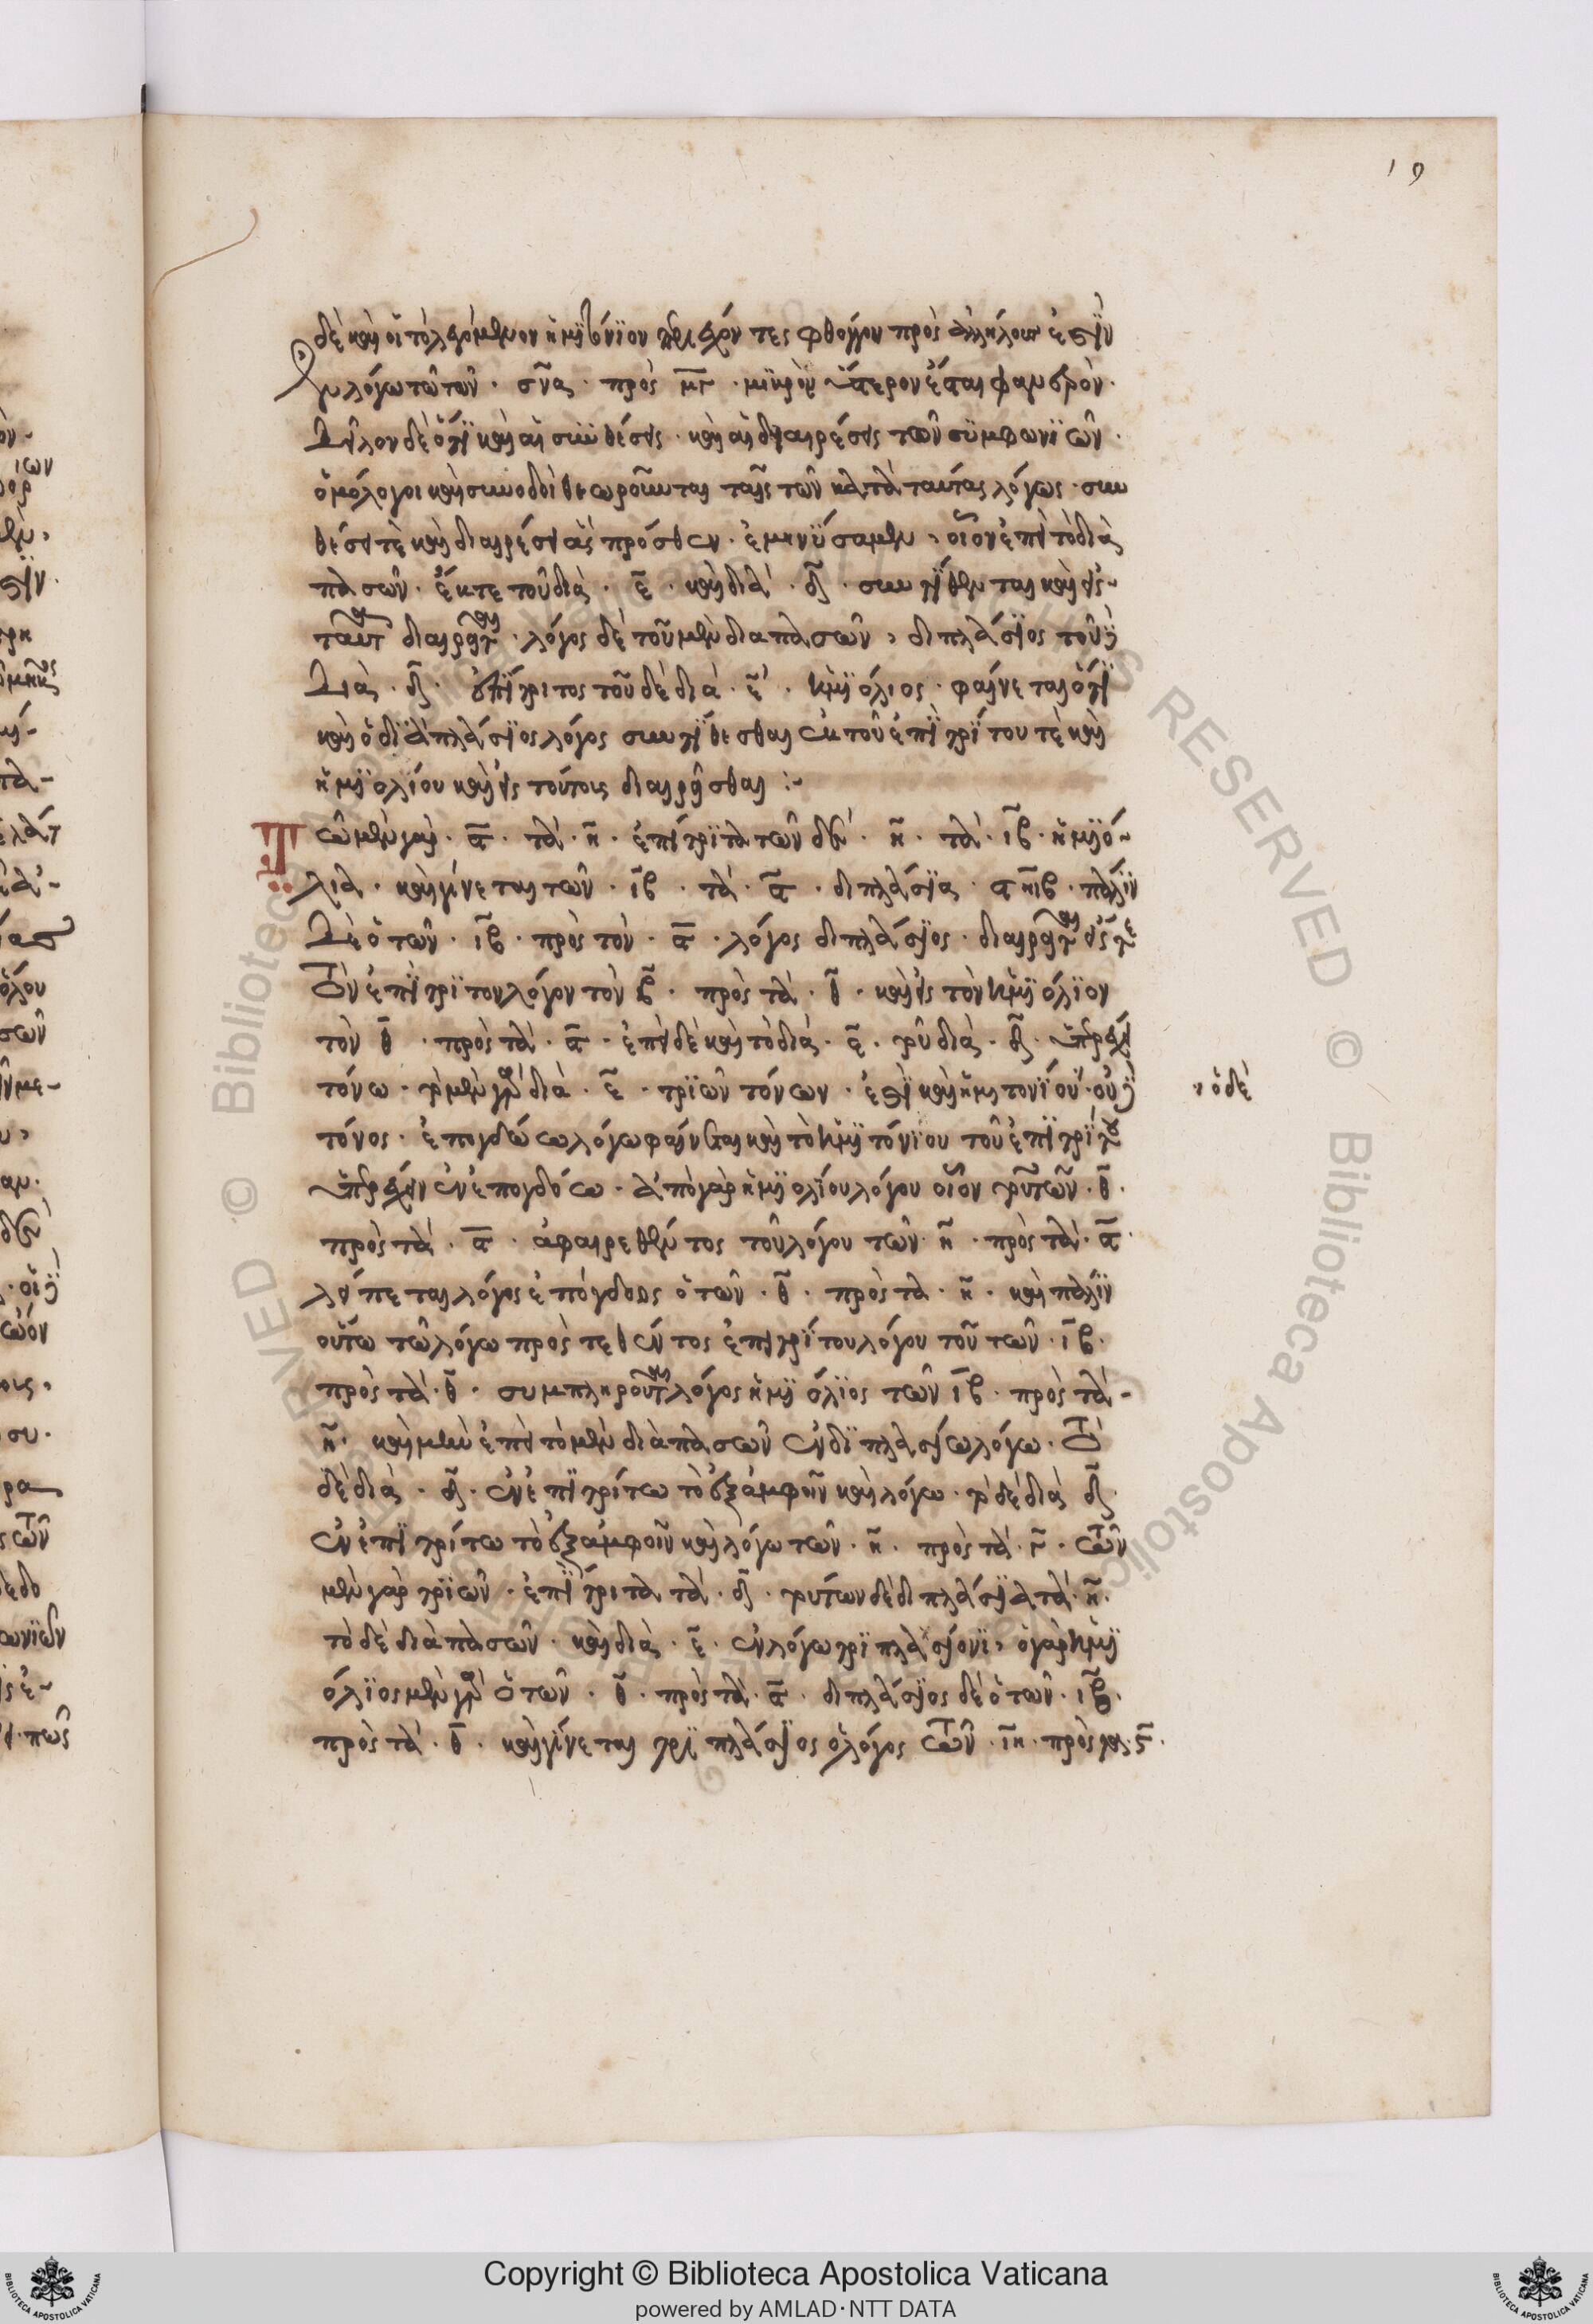 19
δὲ καὶ οἱ τὸ λεγόμενον ἡμιτόνιον περιέχοντες φθόγγοι πρὸς ἀλλήλους εἰσὶν
ἐν λόγω τῶ τῶν · σνς · πρὸς σμγ · μικρὸν ὕστερον ἔσται φανερόν ·
Δῆλον δὲ ὅτι καὶ αἱ συνθέσεις · καὶ αἱ διαιρέσεις τῶν συμφωνιῶν ·
ὁμόλογοι καὶ συνοδοὶ θεωροῦνται ταῖς τῶν κατὰ ταύτας λόγων · συν
θέσεσί τε καὶ διαιρέσεσιν ἃς πρόσθεν · ἐμηνύσαμεν · οἷον ἐπεὶ τὸ διὰ
πασῶν · ἔκ τε τοῦ διὰ · ε̄ · καὶ διὰ · δ̄ · συντίθεται καὶ εἰς
ταῦτα διαιρεῖται · λόγος δὲ τοῦ μὲν διαπασῶν · διπλάσιος τοῦ δὲ
Διὰ · δ̄ · ἐπίτριτος τοῦ δὲ διὰ · ε̄ · ἡμιόλιος · φαίνεται ὅτι
καὶ ὁ διπλάσιος λόγος συντίθεσθαι ἐκ τοῦ ἐπιτρίτου τὲ καὶ
ἡμιολίου καὶ εἰς τούτους διαιρεῖσθαι :-
Τῶν μὲν γὰρ · ϛ̄ · τὰ · η̄ · ἐπίτριτα τῶν δὲ · η̄ · τὰ · ιβ̄ · ἡμιό-
λια · καὶ γίνεται τῶν · ιβ̄ · τὰ · ϛ̄ · διπλάσια · ϛ η ιβ · πάλιν
Δὲ ὁ τῶν · ιβ̄ · πρὸς τὸν · ϛ̄ · λόγος διπλάσιος · διαιρεῖται εἴς τε
τὸν ἐπίτριτον λόγον τὸν ιβ̄ · πρὸς τὰ · θ̄ · καὶ εἰς τὸν ἡμιόλιον
τὸν θ̄ · πρὸς τὰ · ϛ̄ · ἐπεὶ δὲ καὶ τὸ διὰ · ε̄ · τοῦ διὰ · δ̄ · ὑπερέχει
τόνω · τὸ μὲν γὰρ διὰ · ε̄ · τριῶν τόνων · ἐστὶ καὶ ἡμιτονίου · ὁ δὲ
τόνος · ἐπογδόω λόγω φαίνεται καὶ τὸ ἡμιτόνιον τοῦ ἐπιτρίτου
ὑπερέχειν ἐν ἐπογδόω · ἀπὸ γὰρ ἡμιολίου λόγου οἷον τοῦ τῶν · θ̄ ·
πρὸς τὰ · ϛ̄ · ἀφαιρεθέντος τοῦ λόγου τῶν · η̄ · πρὸς τὰ · ϛ̄ ·
λείπεται λόγος ἐπόγδοος ὁ τῶν · θ̄ · πρὸς τὰ · η̄ · καὶ πάλιν
οὕτω τῶ λόγω προστεθέντος ἐπιτρίτου λόγου τοῦ τῶν · ιβ̄ ·
πρὸς τὰ · θ̄ · συμπληροῦται λόγος ἡμιόλιος τῶν ιβ̄ · πρὸς τὰ -
η̄ · καὶ μὲν ἐπεὶ τὸ μὲν διὰ πασῶν ἐν διπλασίω λόγω · τὸ
δὲ διὰ · δ̄ · ἐν ἐπιτρίτω τὸ ἐξ ἀμφοῖν καὶ λόγω · τὸ δὲ διὰ δ̄ ·
ἐν ἐπιτρίτω τὸ ἐξ ἀμφοῖν καὶ λόγω τῶν · η̄ · πρὸς τὰ · γ̄ · τῶν
μὲν γὰρ τριῶν · ἐπίτριτα τὰ · δ̄ · τούτων δὲ διπλάσια τὰ · η̄ ·
τὸ δὲ διὰ πασῶν · καὶ διὰ · ε̄ · ἐν λόγω τριπλασίονι · ὁ γὰρ ἡμι
όλιος μὲν γὰρ ὁ τῶν · θ̄ · πρὸς τὰ · ϛ̄ · διπλάσιος δὲ ὁ τῶν · ιη̄ ·
πρὸς τὰ · θ̄ · καὶ γίνεται τριπλάσιος ὁ λόγος τῶν · ιη̄ · πρὸς τὰ · ϛ̄ ·
, ὁ δὲ
Copyright © Biblioteca Apostolica Vaticana
powered by AMLAD·NTT DATA